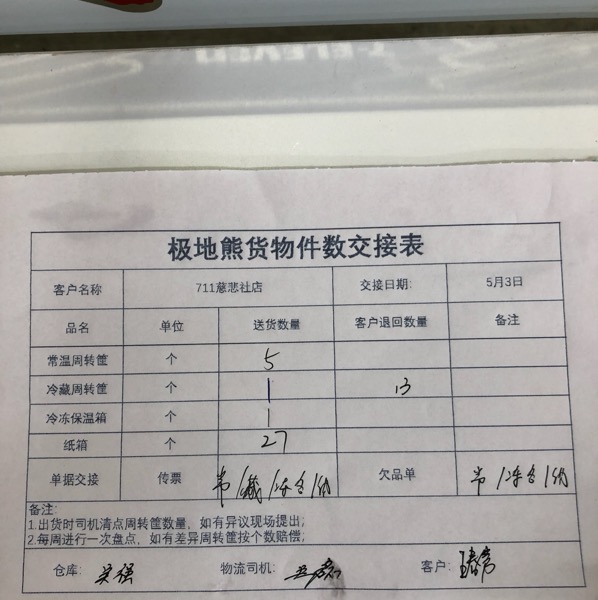 极地熊货物件数交接表
客户名称 711慈悲社店 交接日期: 5月3日
品名 单位 送货数量 客户退回数量 备注
常温周转筐 个 5
冷藏周转筐 个 1 13
冷冻保温箱 个 1
纸箱 个 27
单据交接 传票 常/藏/冻各1份 欠品单 常/冻各1份
备注:
1.出货时司机清点周转筐数量，如有异议现场提出;
2.每周进行一次盘点，如有差异周转筐按个数赔偿;
仓库: 物流司机: 客户: